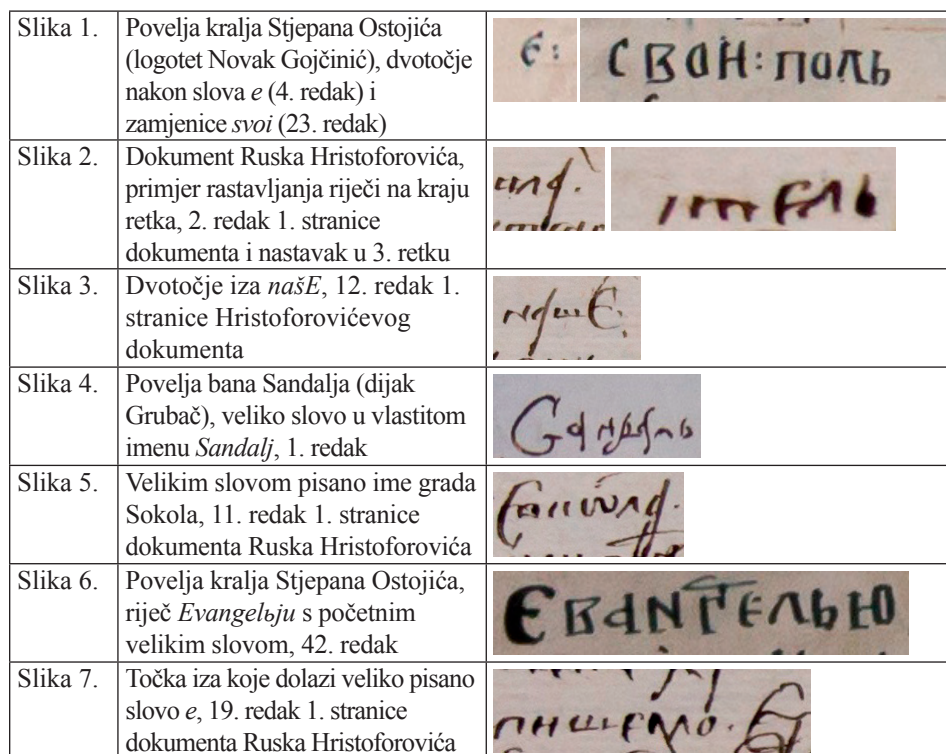 Slika 1.
Povelja kralja Stjepana Ostojića
(logotet Novak Gojčinić), dvotočje
nakon slova e (4. redak) i
zamjenice svoi (23. redak)
є:
СВОН: ПОЛЬ
Slika 2.
Dokument Ruska Hristoforovića,
primjer rastavljanja riječi na kraju
retka, 2. redak 1. stranice
dokumenta i nastavak u 3. retku
Slika 3.
Dvotočje iza našE, 12. redak 1.
stranice Hristoforovićevog
dokumenta
нашЄ:
Slika 4.
Povelja bana Sandalja (dijak
Grubač), veliko slovo u vlastitom
imenu Sandalj, 1. redak
Сандаль
Slika 5.
Velikim slovom pisano ime grada
Sokola, 11. redak 1. stranice
dokumenta Ruska Hristoforovića
Slika 6.
Povelja kralja Stjepana Ostojića,
riječ Evangelьju s početnim
velikim slovom, 42. redak
ЄВАNГЄЛЬЮ
Slika 7.
Točka iza koje dolazi veliko pisano
slovo e, 19. redak 1. stranice
dokumenta Ruska Hristoforovića